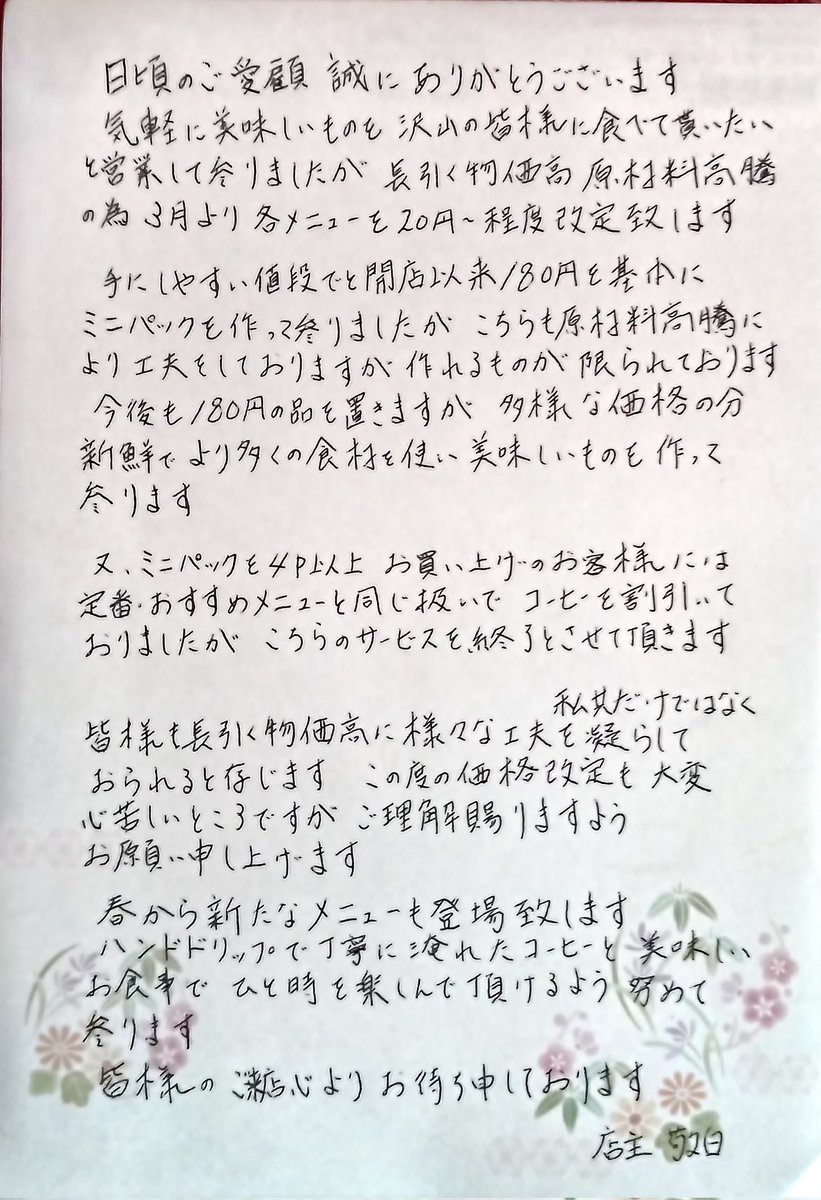 日頃のご愛顧 誠に ありがとうございます
気軽に美味しいものを 沢山の皆様に食べて貰いたい
と営業して参りましたが 長引く物価高 原材料高騰
の為 3月より 各メニューを20円~程度改定致します
手にしやすい値段でと開店以来180円を基本に
ミニパックを作って参りましたが こちらも原材料高騰に
より工夫をしておりますが 作れるものが 限られております
今後も180円の品を置きますが 多様な価格の分
新鮮で より多くの食材を使い 美味しいものを 作って
参ります
又、ミニパックを4P以上 お買い上げのお客様には
定番・おすすめメニューと同じ扱いで コーヒーを割引いて
おりましたが こちらのサービスを終了とさせて頂きます
私共だけではなく
皆様も長引く物価高に様々な工夫を凝らして
おられると存じます この度の価格改定も 大変
心苦しいところですが ご理解賜りますよう
お願い申し上げます
春から新たなメニューも登場致します
ハンドドリップで丁寧に淹れたコーヒーと 美味しい
お食事で ひと時を楽しんで頂けるよう 努めて
参ります
皆様の ご来店心よりお待ち申しております
店主 敬白